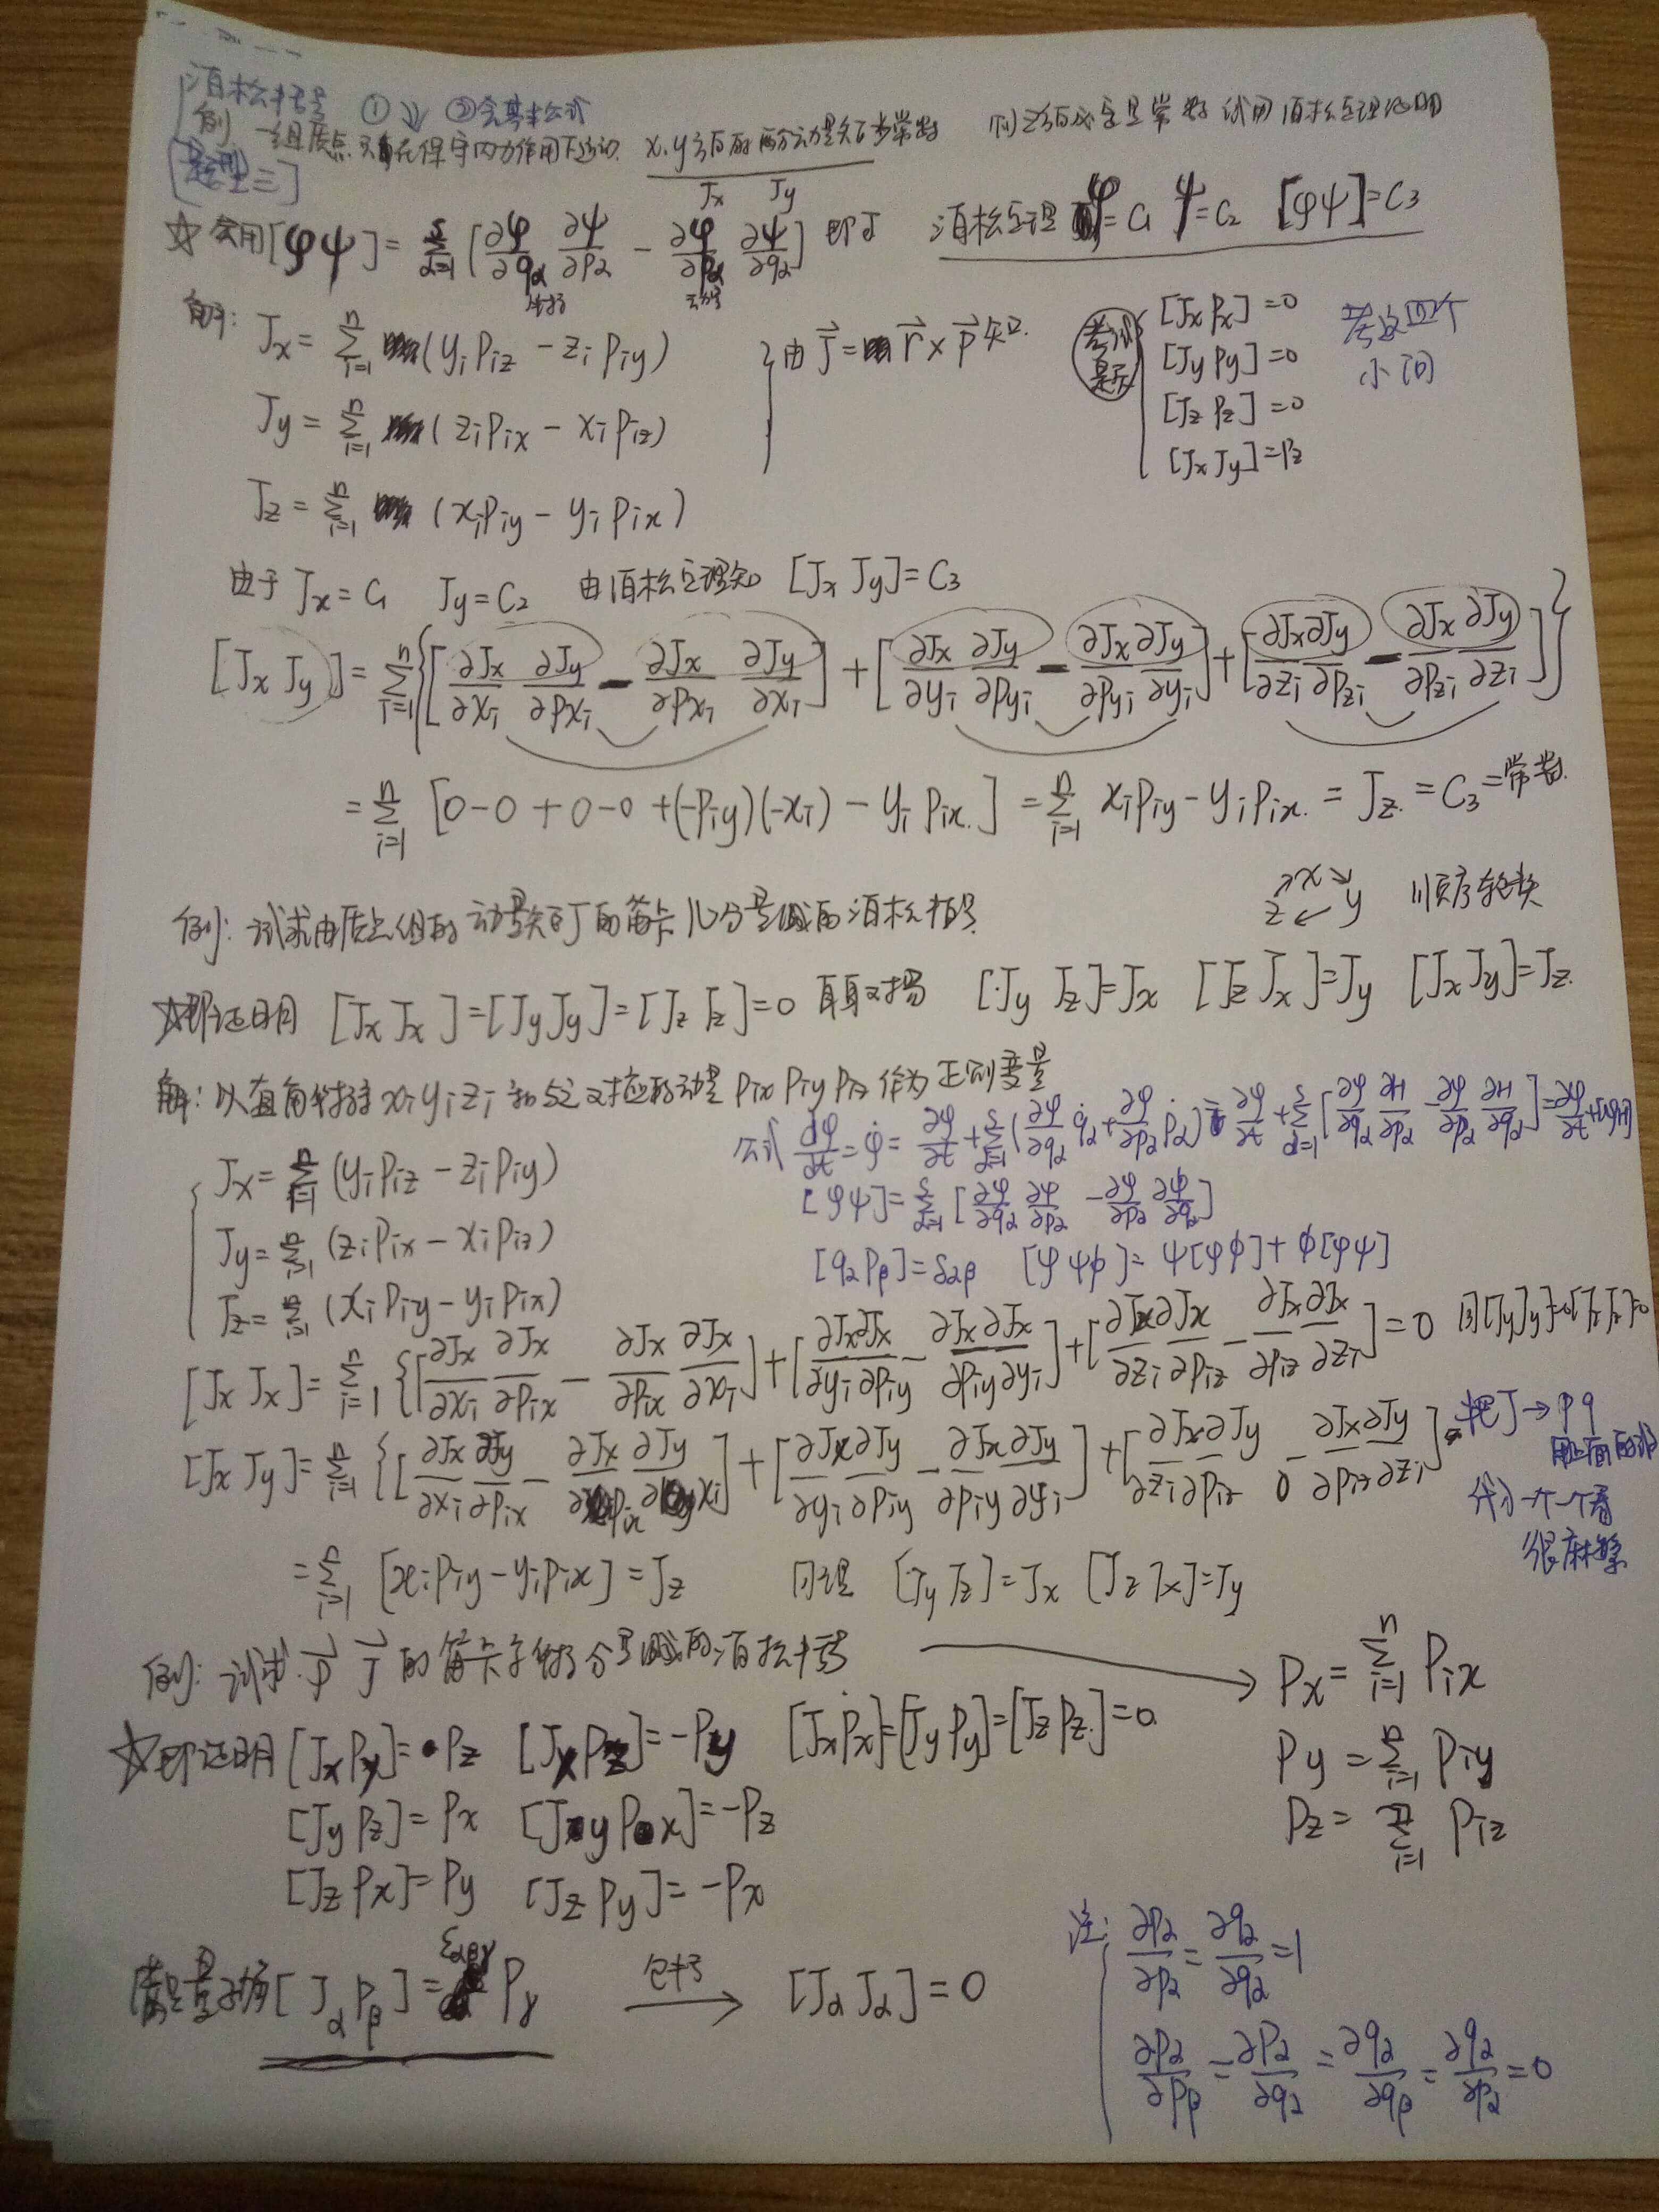 泊松括号
例 ① ⇓ ②含基本公式
一组质点只在保守内力作用下运动. x.y方向的两个动量矩为常数 则z方向必定是常数 试用泊松定理证明
[题型三]
Jx Jy
☆ 会用[φψ] = Σ_{α=1}^{s} [∂φ/∂qα ∂ψ/∂pα - ∂φ/∂pα ∂ψ/∂qα] 即J 泊松定理 φ=C1 ψ=C2 [φψ]=C3
坐标 动量
解: Jx = Σ_{i=1}^{n} (yi piz - zi piy)
Jy = Σ_{i=1}^{n} (zi pix - xi piz)
Jz = Σ_{i=1}^{n} (xi piy - yi pix)
} 由 J⃗ = r⃗ × p⃗ 知.
考试题 [Jx px]=0
[Jy py]=0
[Jz pz]=0
[Jx Jy]=pz
考这四个
小问
由于 Jx=C1 Jy=C2 由泊松定理知 [Jx Jy]=C3
[Jx Jy] = Σ_{i=1}^{n} {[∂Jx/∂xi ∂Jy/∂pxi - ∂Jx/∂pxi ∂Jy/∂xi] + [∂Jx/∂yi ∂Jy/∂pyi - ∂Jx/∂pyi ∂Jy/∂yi] + [∂Jx/∂zi ∂Jy/∂pzi - ∂Jx/∂pzi ∂Jy/∂zi]}
= Σ_{i=1}^{n} [0-0+0-0+(-piy)(-xi) - yi pix.] = Σ_{i=1}^{n} xi piy - yi pix. = Jz. = C3 = 常数.
例: 试求由质点组的动量矩J的笛卡儿分量组成的泊松括号.
x → y → z 顺序轮换
☆即证明 [Jx Jx]=[Jy Jy]=[Jz Jz]=0 [Jy Jz]=Jx [Jz Jx]=Jy [Jx Jy]=Jz.
解: 以直角坐标 xi yi zi 和与之对应的动量 pix piy piz 作为正则变量
公式 dφ/dt = φ̇ = ∂φ/∂t + Σ_{α=1}^{s} (∂φ/∂qα q̇α + ∂φ/∂pα ṗα) = ∂φ/∂t + Σ_{α=1}^{s} [∂φ/∂qα ∂H/∂pα - ∂φ/∂pα ∂H/∂qα] = ∂φ/∂t + [φH]
Jx = Σ_{i=1}^{n} (yi piz - zi piy)
[φψ] = Σ_{α=1}^{s} [∂φ/∂qα ∂ψ/∂pα - ∂φ/∂pα ∂ψ/∂qα]
Jy = Σ_{i=1}^{n} (zi pix - xi piz)
[qα pβ]=δαβ [φ ψϕ]= ψ[φϕ]+ϕ[φψ]
Jz = Σ_{i=1}^{n} (xi piy - yi pix)
[Jx Jx] = Σ_{i=1}^{n} {[∂Jx/∂xi ∂Jx/∂pix - ∂Jx/∂pix ∂Jx/∂xi] + [∂Jx/∂yi ∂Jx/∂piy - ∂Jx/∂piy ∂Jx/∂yi] + [∂Jx/∂zi ∂Jx/∂piz - ∂Jx/∂piz ∂Jx/∂zi] = 0 同[Jy Jy]=0 [Jz Jz]=0
[Jx Jy] = Σ_{i=1}^{n} {[∂Jx/∂xi ∂Jy/∂pix - ∂Jx/∂pix ∂Jy/∂xi] + [∂Jx/∂yi ∂Jy/∂piy - ∂Jx/∂piy ∂Jy/∂yi] + [∂Jx/∂zi ∂Jy/∂piz - ∂Jx/∂piz ∂Jy/∂zi]
把J→pq
用上面的
代) 一个一个看
很麻烦
= Σ_{i=1}^{n} [xi piy - yi pix] = Jz 同理 [Jy Jz]=Jx [Jz Jx]=Jy
例: 试求 p⃗ J⃗ 的笛卡尔坐标分量组成的泊松括号 → px = Σ_{i=1}^{n} pix
☆即证明 [Jx py]= pz [Jx pz]= -py [Jx px]=[Jy py]=[Jz pz.]=0.
py = Σ_{i=1}^{n} piy
[Jy pz]= px [Jy px]= -pz
pz = Σ_{i=1}^{n} piz
[Jz px]= py [Jz py]= -px
[Jα pβ] = εαβγ pγ 包括→ [Jα Jα]=0
注: ∂pα/∂pα = ∂qα/∂qα = 1
∂pα/∂pβ = ∂pα/∂qα = ∂qα/∂qβ = ∂qα/∂pα = 0